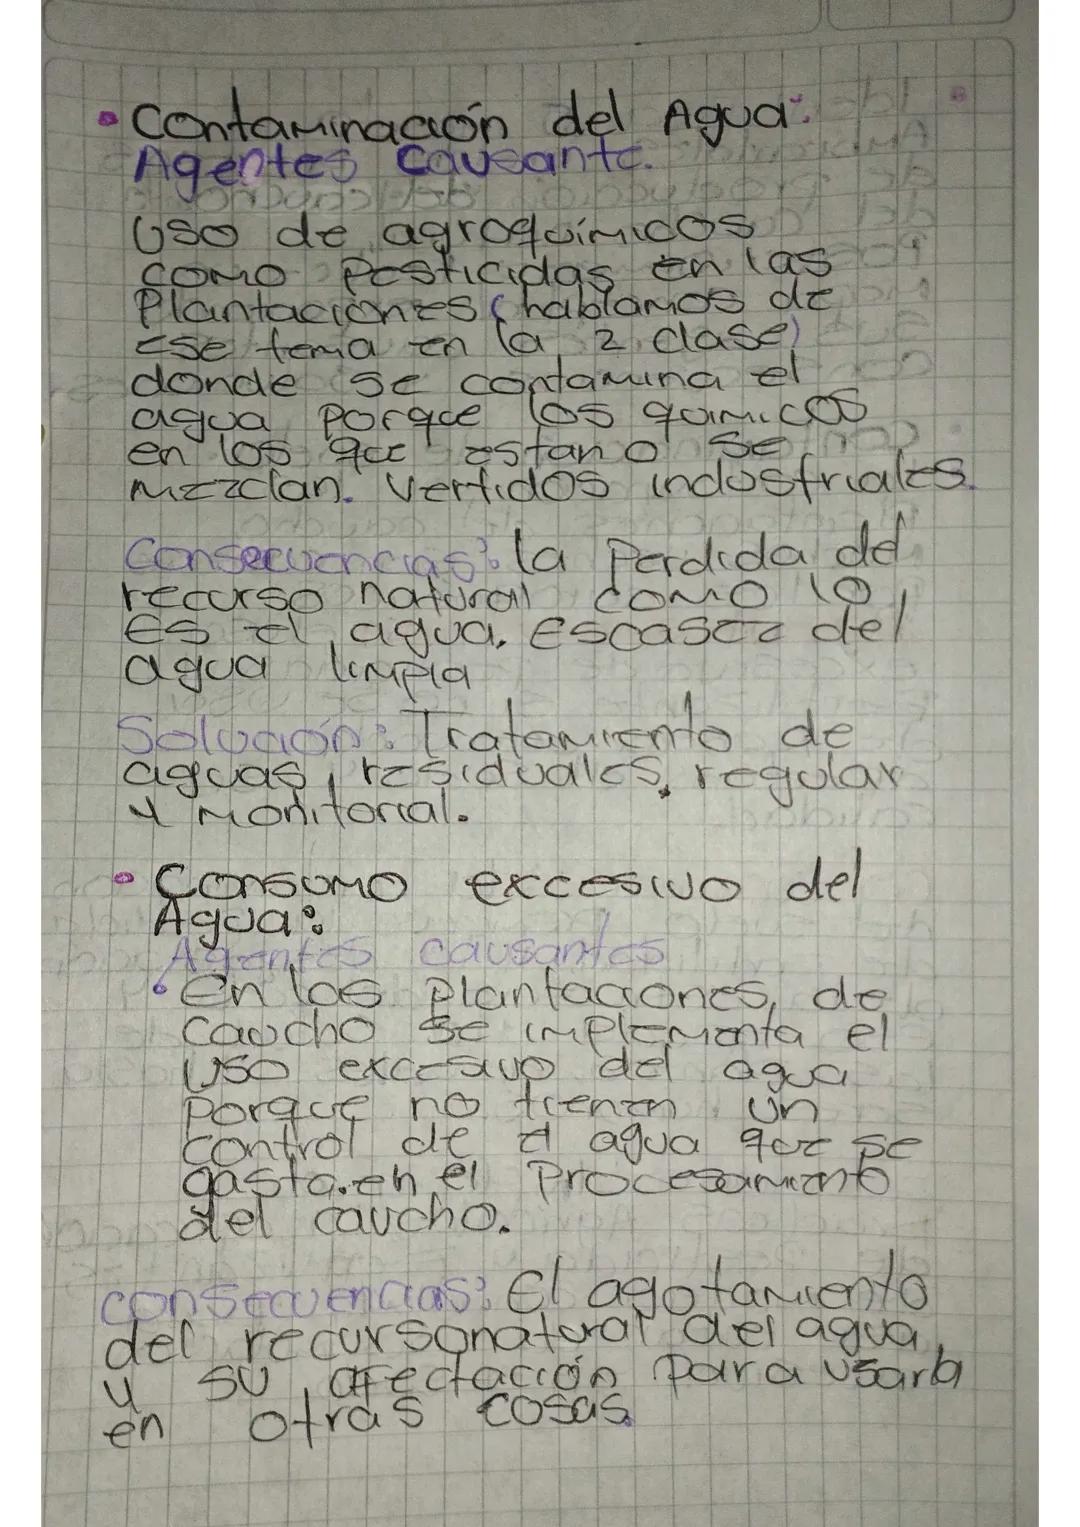 • Contaminación del Agua:
Agentes Causante.
Uso de agroquímicos
como Pesticidas en las
Plantaciones (hablamos de
ese tema en la 2 clase)
donde se contamina el
agua porque los quimicos
en los que estan o se
mezclan. Vertidos industriales.
Consecuencias: la Perdida del
recurso natural como lo
es el agua. Escasez del
agua limpia
Solución: Tratamiento de
aguas residuales, regular
y monitorial.
• Consumo excesivo del
Agua:
Agentes causantes
• En las Plantaciones, de
Caucho se implementa el
uso excesivo del agua
porque no tienen un
control de el agua que se
gasta.en el Procesamiento
del caucho.
consecuencias: El agotamiento
del recursonatural del agua,
y su afectación para usarla
en otras cosas.